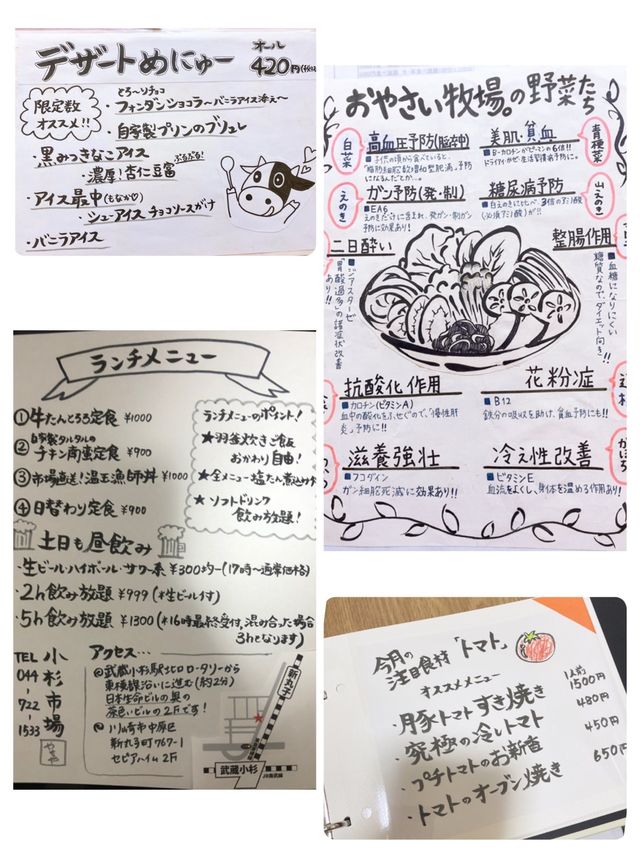 デザートめにゅー
オール
420円(税込)
限定数
オススメ!!
とろ〜りチョコ
フォンダンショコラ〜バニラアイス添え〜
・自家製プリンのブリュレ
・黒みつきなこアイス
ぷるぷる!
・濃厚!杏仁豆腐
・アイス最中(もなか)
・シューアイス チョコソースがけ
・バニラアイス
おやさい牧場。の野菜たち
白菜
高血圧予防(脳卒中)
■子供の頃から食べていると、
えのき
ガン予防(発・制)
■EA6
えのきだけに含まれ、発ガン・制ガン
予防に効果あり!
二日酔い
■ジアスターゼ
「胃酸過多」の諸症状改善
あり!!
美肌・貧血
青梗菜
■B-カロチンがピーマンの6倍!!
ドライアイやかぜ・生活習慣病予防に。
糖尿病予防
山えのき
■白えのきに比べ、3倍のアミノ酸
(必須アミノ酸)が!!
整腸作用
■血糖になりにくい
糖質なので、ダイエット向き!!
抗酸化作用
■カロチン(ビタミンA)
血中の酸化をふせぐので、「慢性肝
炎」予防に!!
花粉症
■B12
鉄分の吸収を助け、貧血予防にも!!
滋養強壮
■フコダイン
ガン細胞死滅に効果あり!!
冷え性改善
■ビタミンE
血流をよくし、身体を温める作用あり!
ランチメニュー
①牛たんとろろ定食 ¥1000
②自家製タルタルの
チキン南蛮定食 ¥900
③市場直送!温玉漁師丼 ¥1000
④日替わり定食 ¥900
ランチメニューのポイント!
★羽釜炊きご飯
おかわり自由!
★全メニュー塩たん煮込み付
★ソフトドリンク
飲み放題!
土日も昼飲み
・生ビール・ハイボール・サワー系 ¥300均一(17時〜通常価格)
・2h飲み放題 ¥999(*生ビール付)
・5h飲み放題 ¥1300(*16時最終受付、混み合った場合
3hとなります)
TEL
044
-
722
-
1533
小杉市場
アクセス…
@武蔵小杉駅北口ロータリーから
東横線沿いに進む(約2分)
日本生命ビルの奥の
茶色いビルの2Fです!
@川崎市中原区
新丸子町767-1
セピアハイム2F
新丸子
武蔵小杉
JR南武線
今月の
注目食材「トマト」
オススメメニュー
1人前
・月豚トマトすき焼き 1500円
・究極の冷しトマト 480円
・プチトマトのお新香 450円
・トマトのオーブン焼き 650円